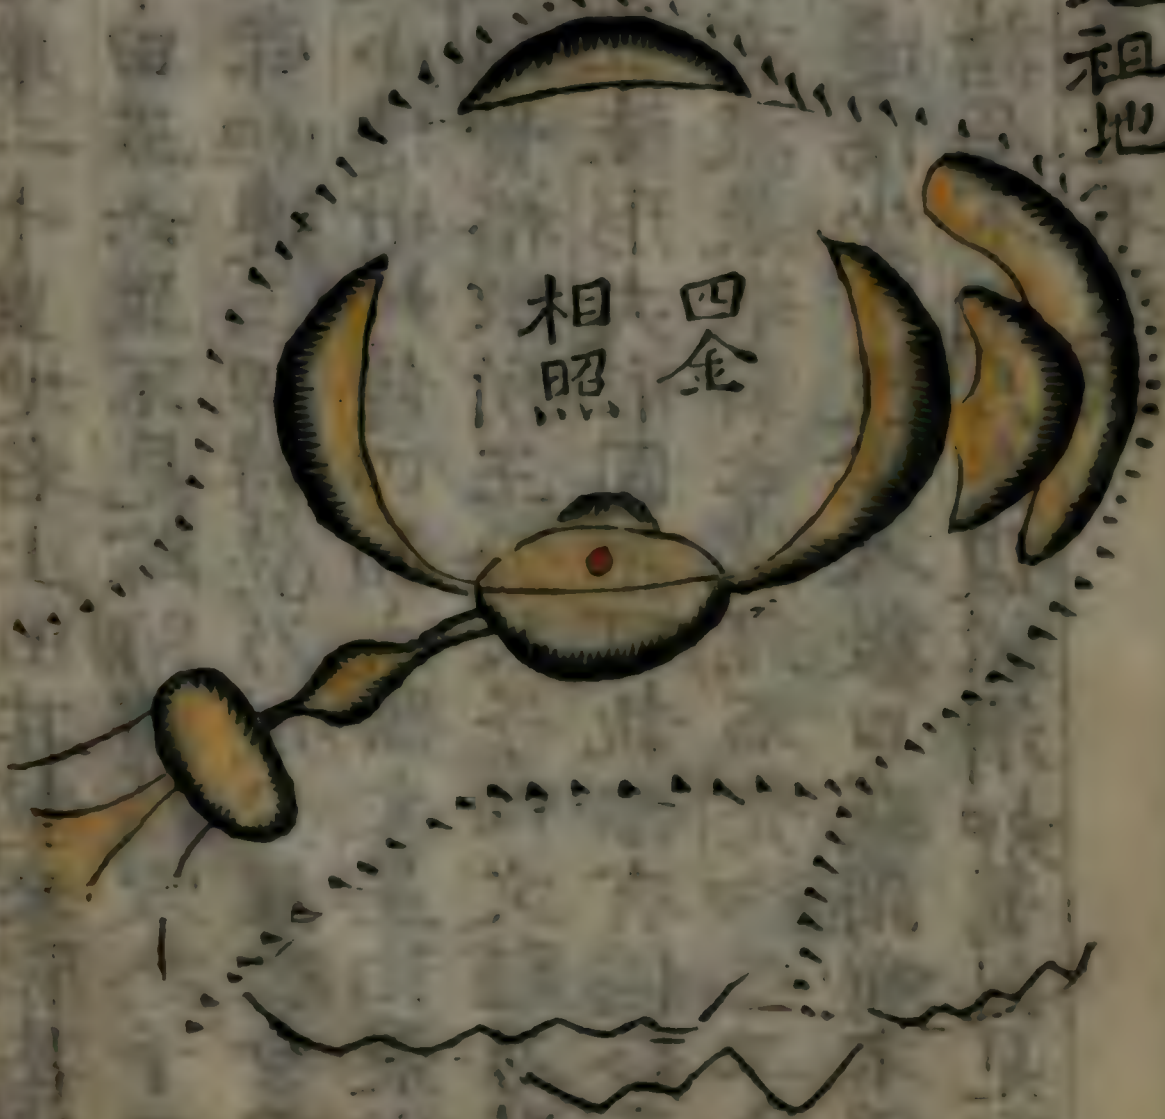 祖地
四金
相照